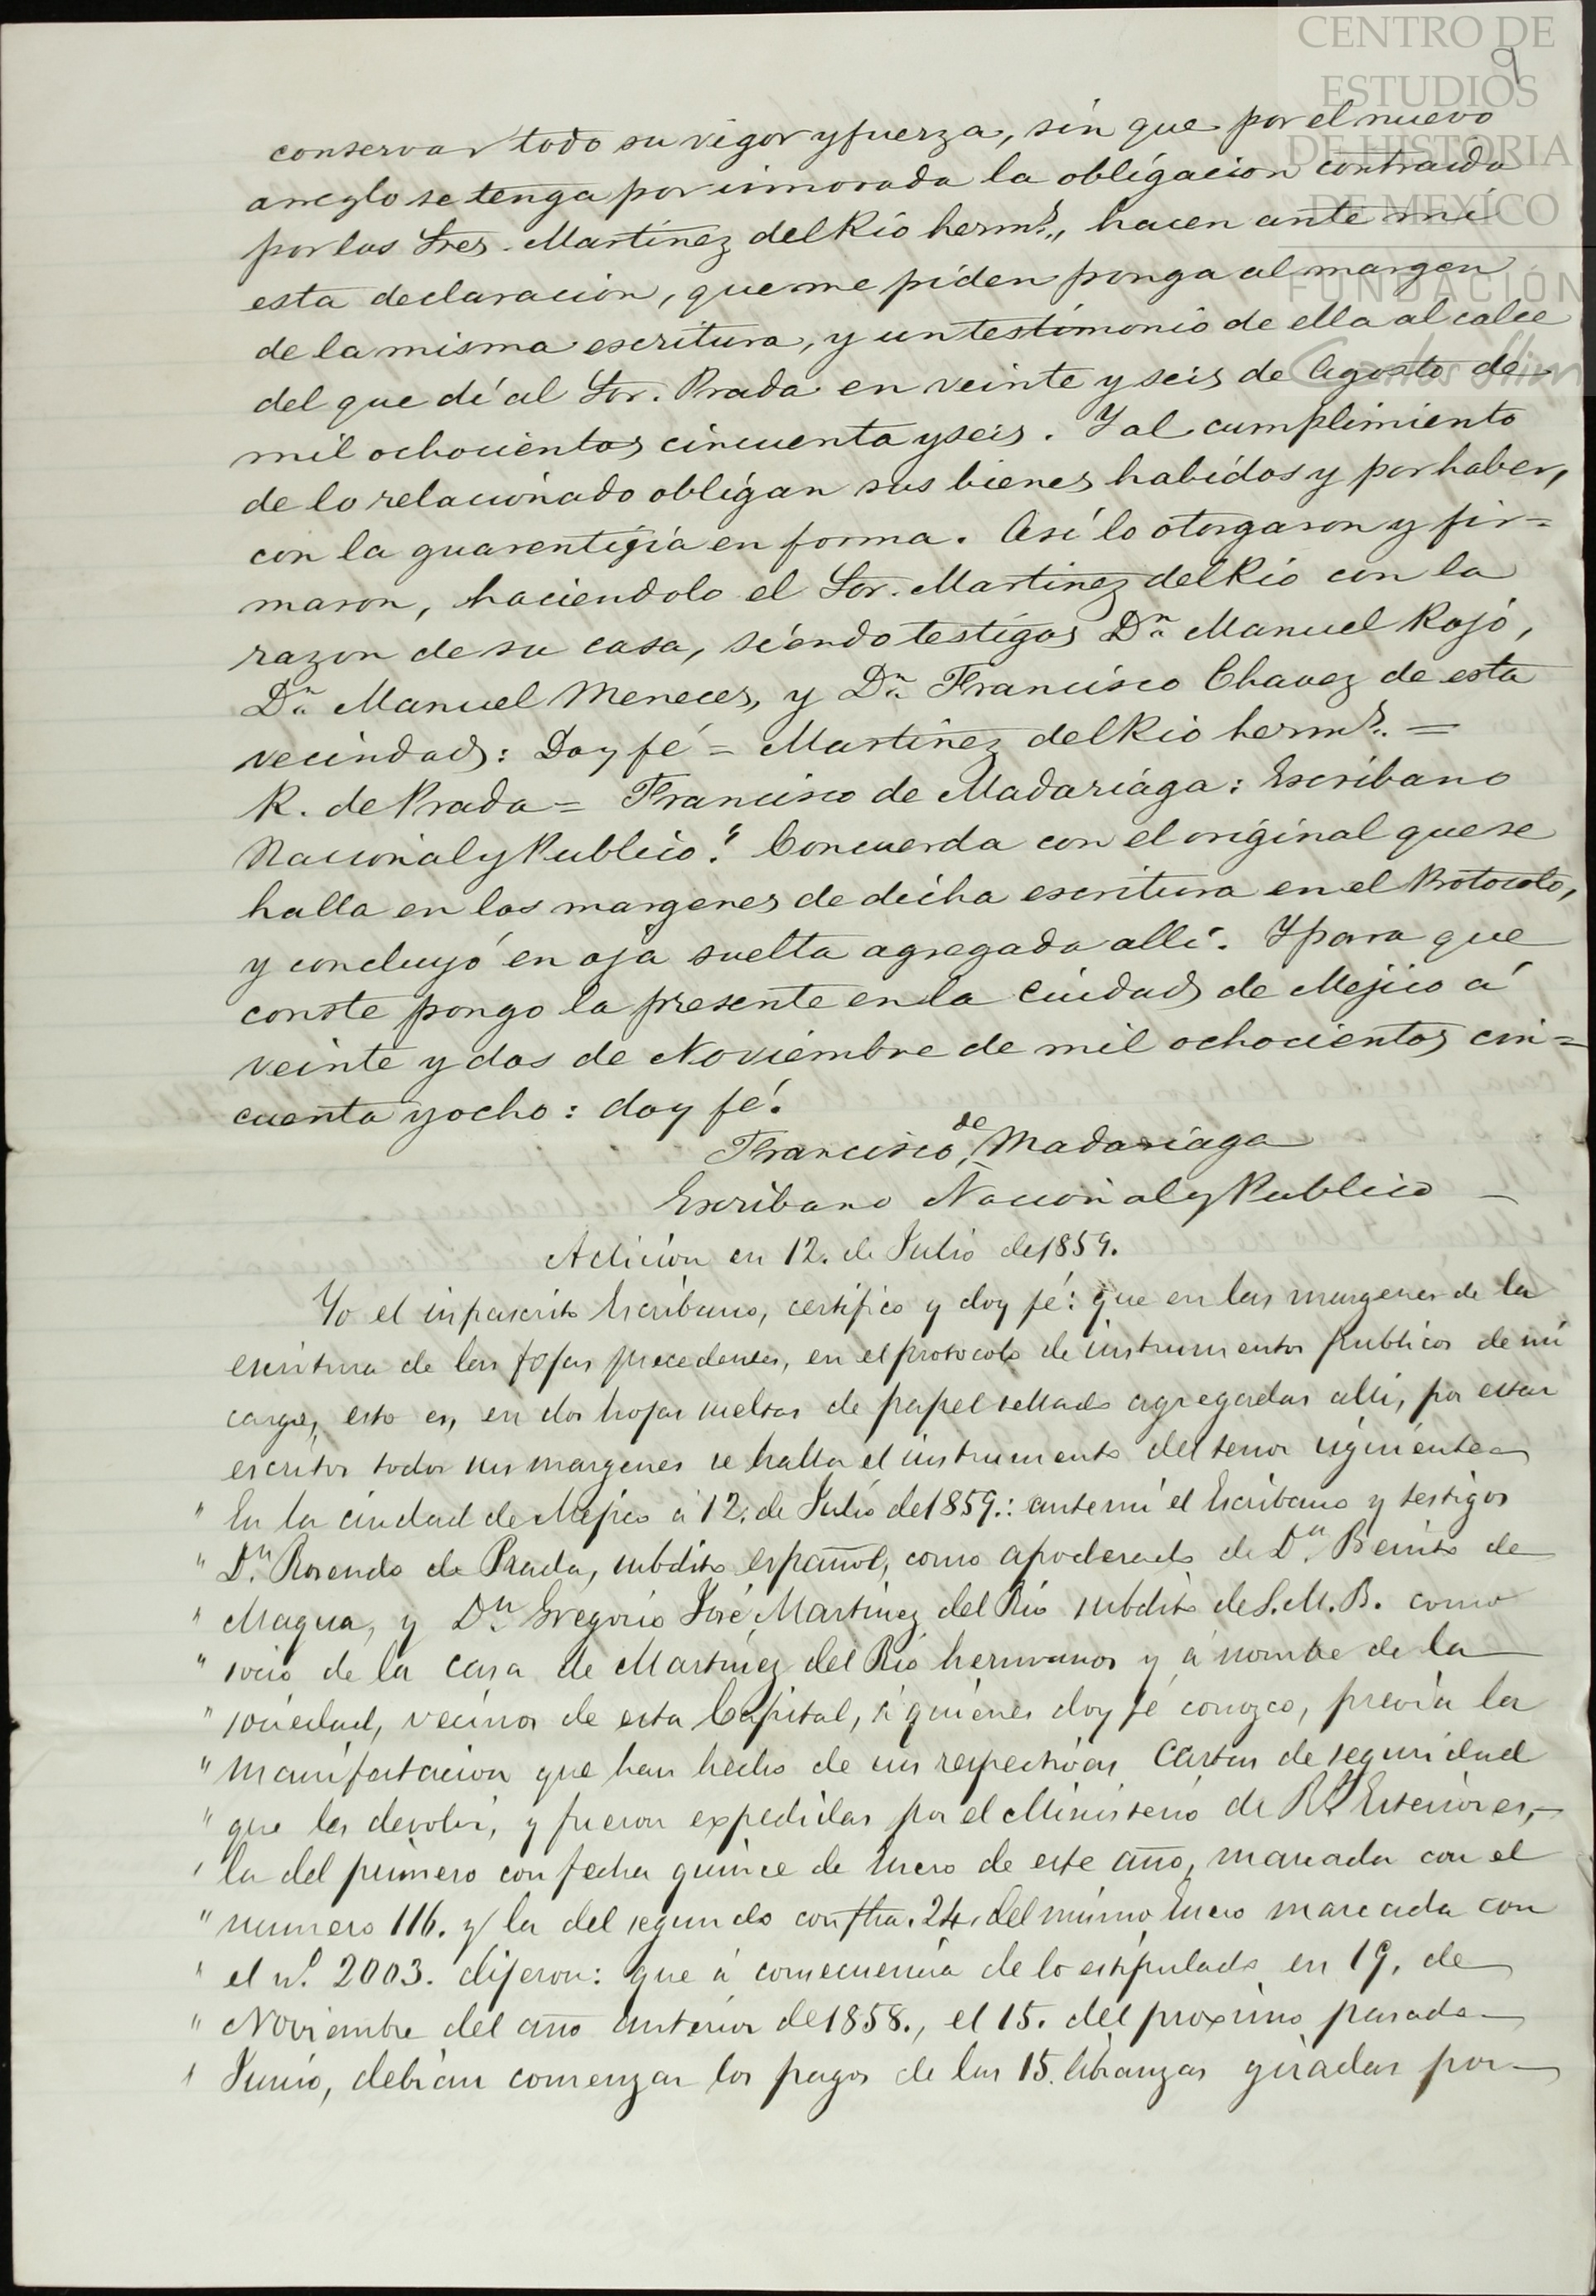 CENTRO DE
ESTUDIOS
DE HISTORIA
DE MEXÍCO
FUNDACIÓN
Carlos Slim
9
conservar todo su vigor y fuerza, sin que por el nuevo
arreglo se tenga por innovada la obligacion contraida
por los Sres. Martinez del Rio herms., hacen ante mi
esta declaracion, que me piden ponga al margen
de la misma escritura, y un testimonio de ella al calce
del que dí al Sor. Prada en veinte y seis de Agosto de
mil ochocientos cincuenta y seis. Y al cumplimiento
de lo relacionado obligan sus bienes habidos y por haber,
con la guarentigia en forma. Asi lo otorgaron y fir=
maron, haciendolo el Sor. Martinez del Rio con la
razon de su casa, siendo testigos Dn. Manuel Rojo,
Dn. Manuel Meneces, y Dn. Francisco Chavez de esta
vecindad: Doy fé = Martinez del Rio herms. =
R. de Prada = Francisco de Madariaga: Escribano
Nacional y Publico." Concuerda con el original que se
halla en los margenes de dicha escritura en el Protocolo,
y concluyó en oja suelta agregada alli. Y para que
conste pongo la presente en la Ciudad de Mejico á
veinte y dos de Noviembre de mil ochocientos cin=
cuenta y ocho: doy fé.
Francisco de Madariaga
Escribano Nacional y Publico
Adicion en 12. de Julio de 1859.
Yo el infrascrito Escribano, certifico y doy fé: que en las margenes de la
escritura de las fojas precedentes, en el protocolo de instrumentos publicos de mi
cargo, esto es, en dos hojas sueltas de papel sellado agregadas alli, por estar
escritos todos sus margenes se halla el instrumento del tenor siguiente
" En la ciudad de Mejico á 12. de Julio de 1859.: ante mi el Escribano y testigos
" Dn. Rosendo de Prada, subdito español, como apoderado de Dn. Benito de
" Magua, y Dn. Gregorio José Martinez del Rio subdito de S. M. B. como
" socio de la casa de Martinez del Rio hermanos y á nombre de la
" sociedad, vecinos de esta Capital, á quienes doy fé conozco, previa la
" manifestacion que han hecho de sus respectivas Cartas de seguridad
" que les devolví, y fueron expedidas por el Ministerio de Rs. Esteriores,
" la del primero con fecha quince de Enero de este año, marcada con el
" numero 116. y la del segundo con fha. 24. del mismo Enero marcada con
" el no. 2003. dijeron: que á consecuencia de lo estipulado en 19, de
" Noviembre del año anterior de 1858., el 15. del proximo pasado
" Junio, debian comenzar los pagos de las 15. libranzas giradas por